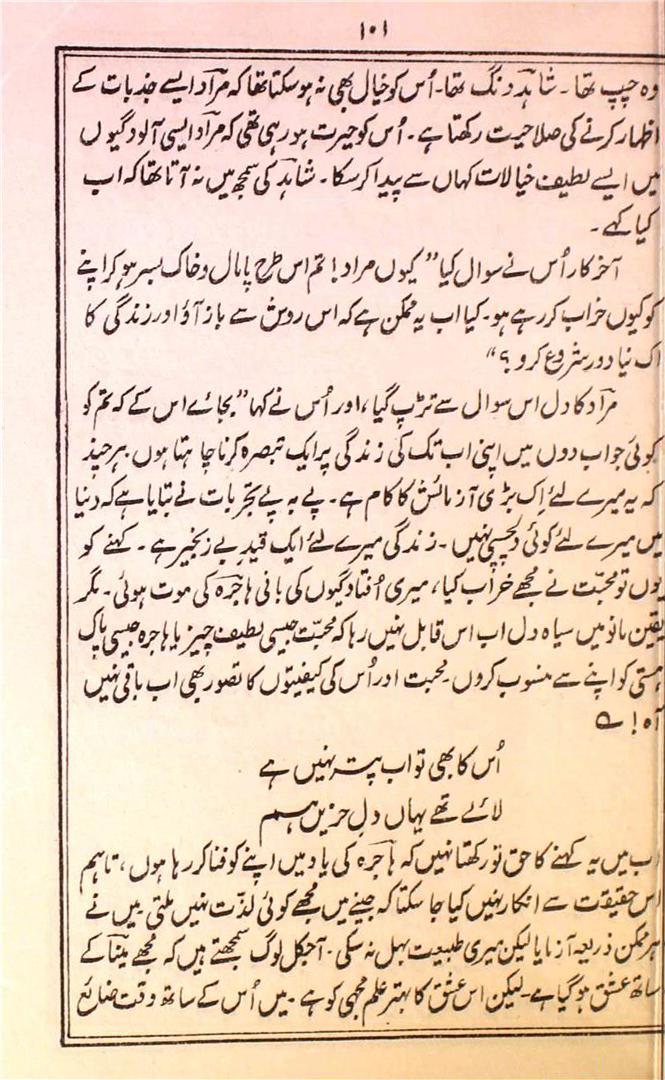 ۱۰۱
وہ چپ تھا۔ شاہد دنگ تھا۔ اُس کو خیال بھی نہ ہو سکتا تھا کہ مراد ایسے جذبات کے
اظہار کرنے کی صلاحیت رکھتا ہے۔ اُس کو حیرت ہو رہی تھی کہ مراد ایسی آلودگیوں
میں ایسے لطیف خیالات کہاں سے پیدا کر سکا۔ شاہد کی سمجھ میں نہ آتا تھا کہ اب
کیا کہے۔
آخر کار اُس نے سوال کیا ”کیوں مراد! تم اس طرح پامال و خاک بسر ہو کر اپنے
کو کیوں خراب کر رہے ہو۔ کیا اب یہ ممکن ہے کہ اس روش سے باز آؤ اور زندگی کا
اک نیا دور شروع کرو؟“
مراد کا دل اس سوال سے تڑپ گیا، اور اُس نے کہا ”بجائے اس کے کہ تم کو
کوئی جواب دوں میں اپنی اب تک کی زندگی پر ایک تبصرہ کرنا چاہتا ہوں ہر چند
کہ یہ میرے لئے اِک بڑی آزمائش کا کام ہے۔ پے بہ پے تجربات نے بتایا ہے کہ دنیا
میں میرے لئے کوئی دلچسپی نہیں۔ زندگی میرے لئے ایک قیدِ بے زنجیر ہے۔ کہنے کو
یوں تو محبّت نے مجھے خراب کیا، میری اُفتادگیوں کی بانی ہاجرہ کی موت ہوئی۔ مگر
یقین مانو میں سیاہ دل اب اس قابل نہیں رہا کہ محبّت جیسی لطیف چیز یا ہاجرہ جیسی پاک
ہستی کو اپنے سے منسوب کروں۔ محبت اور اُس کی کیفیتوں کا تصور بھی اب باقی نہیں
آہ! ؎
اُس کا بھی تو اب پتہ نہیں ہے
لائے تھے یہاں دلِ حزیں ہم
اب میں یہ کہنے کا حق تو رکھتا نہیں کہ ہاجرہ کی یاد میں اپنے کو فنا کر رہا ہوں، تاہم
اس حقیقت سے انکار نہیں کیا جا سکتا کہ جینے میں مجھے کوئی لذّت نہیں ملتی۔ میں نے
ہر ممکن ذریعہ آزمایا لیکن میری طبیعت بہل نہ سکی۔ آجکل لوگ سمجھتے ہیں کہ مجھے مینا کے
ساتھ عشق ہو گیا ہے۔ لیکن اس عشق کا بہتر علم مجھی کو ہے۔ میں اُس کے ساتھ وقت ضائع